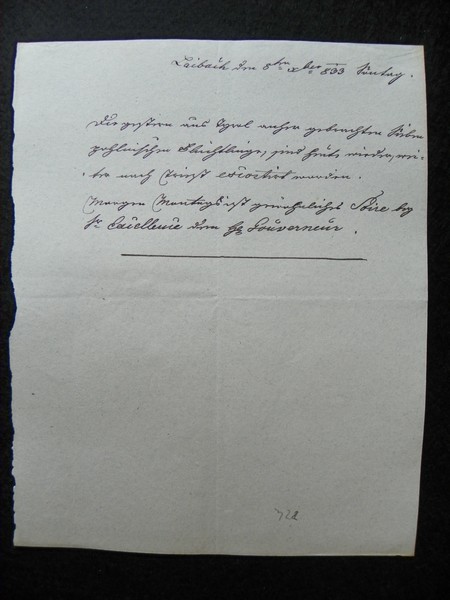 Laibach den 8ten xber 833 Sontag.
Die gestern aus Tyrol anher gebrachten Sieben
pohlnischen Flüchtlinge, sind heute wieder wei-
ter nach Triest escortirt worden.
Morgen Montags ist gewöhnliches Soire bey
Sr Excellenz dem Hr Gouverneur.
722